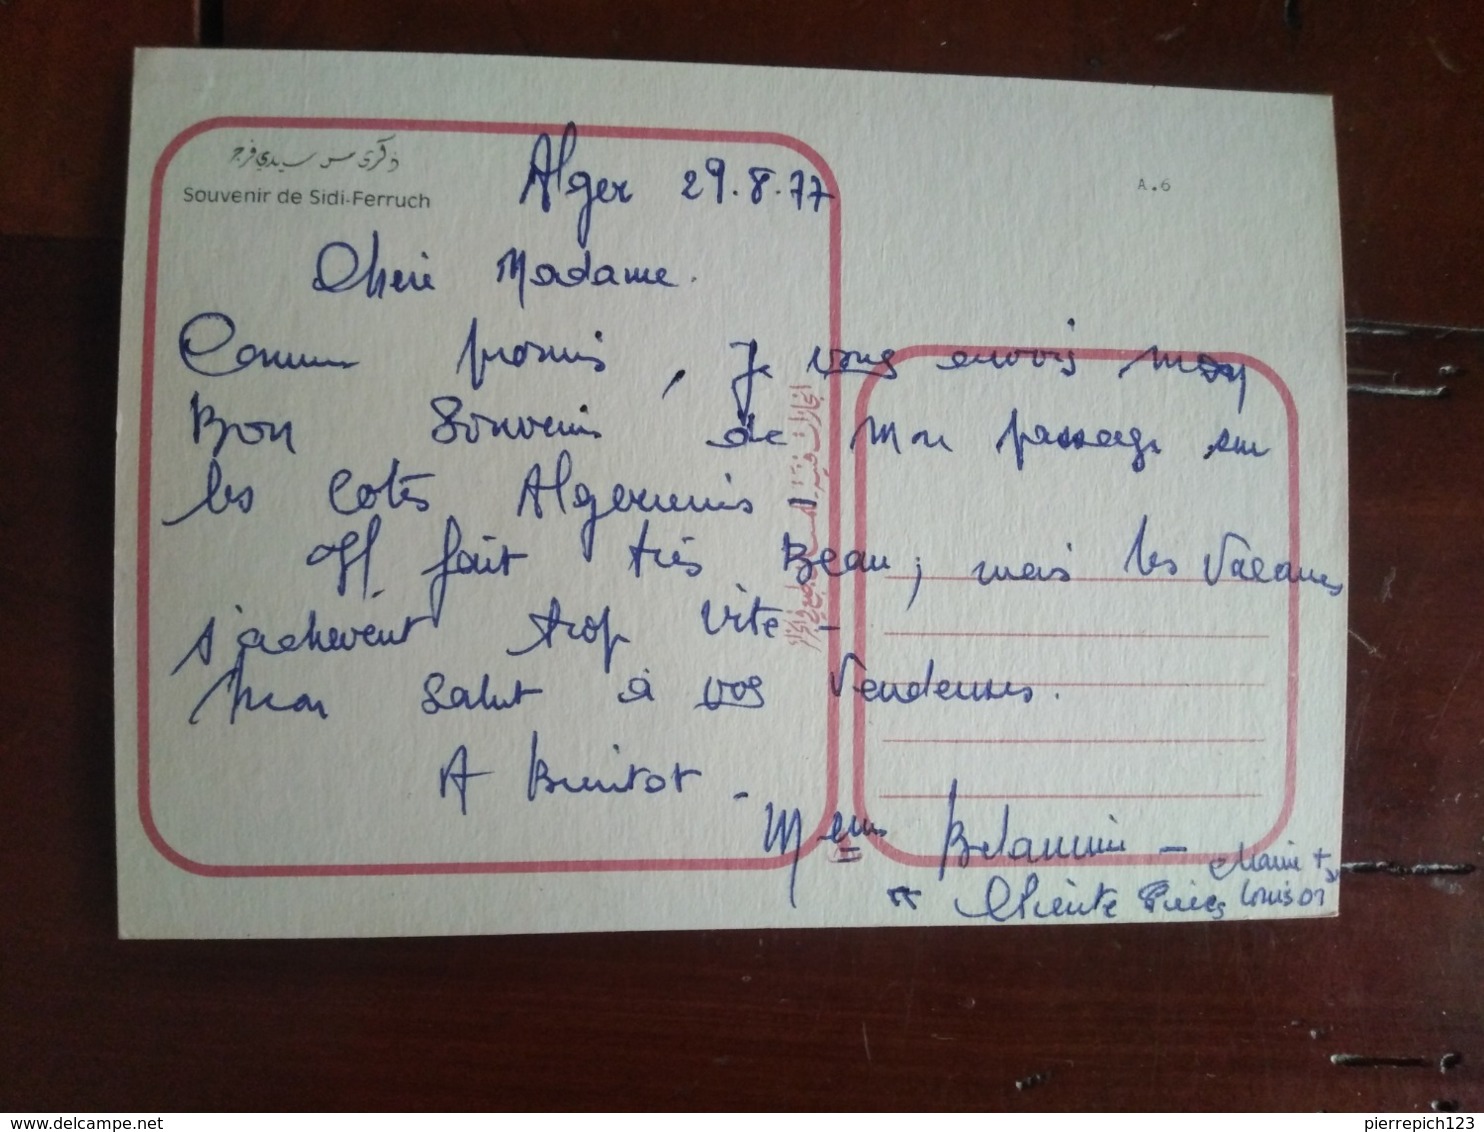 ذكرى من سيدي فرج
Souvenir de Sidi-Ferruch
Alger 29.8.77
A.6
Chère Madame.
Comme promis, je vous envois mon
Bon Souvenir de mon passage sur
les Cotes Algeriennes -
Il fait très Beau, mais les Vacances
s'achèvent trop vite -
Mon salut à vos Vendeuses.
A Bientot -
Cliente
pierrepich123